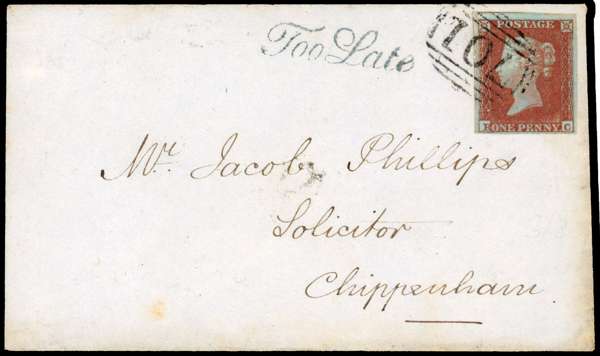 Too Late
POSTAGE
ONE PENNY
C
Mr. Jacob Phillips
Solicitor
Chippenham